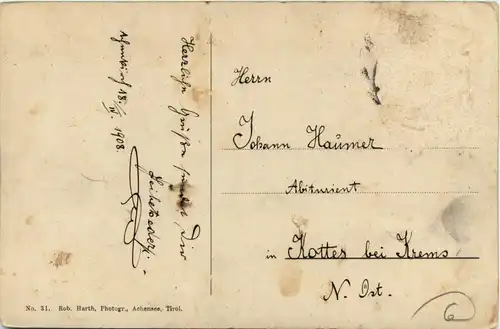 Achenkirch 18./VI. 1908.
Herzliche Grüße sendet Dir
Herrn
Johann Haumer
Abiturient
in Kottes bei Krems
N. Öst.
6
No. 31. Rob. Harth, Photogr., Achensee, Tirol.